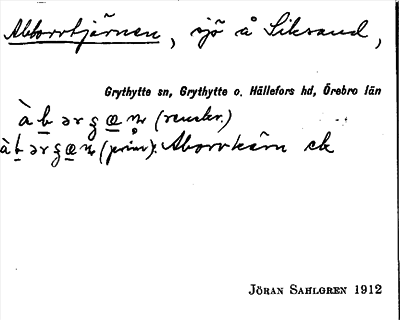 Abborrtjärnen, sjö å Liksand,
Grythytte sn, Grythytte o. Hällefors hd, Örebro län
(renskr.)
(prim). Aborrkärn ek
JÖRAN SAHLGREN 1912